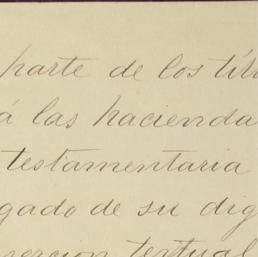 parte de los títu
á las hacienda
testamentaria
gado de su dig
sercion textual